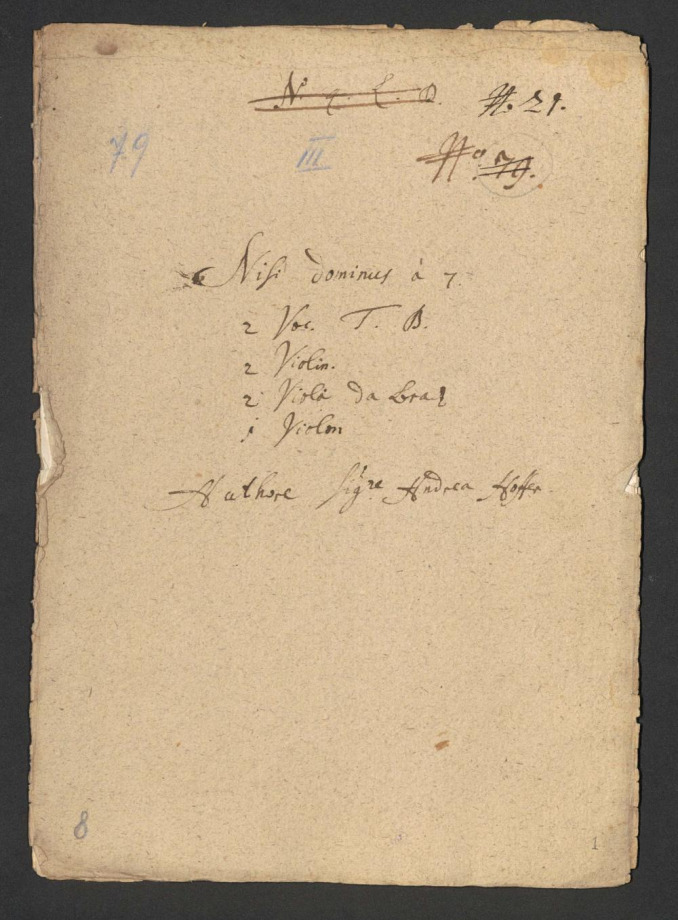 N. 21.
79
III
No. 79.
Nisi dominus à 7.
2 Voc. T. B.
2 Violin.
2 Viola da braz
1 Violon
Authore Sigre Andrea Hofer
8
1